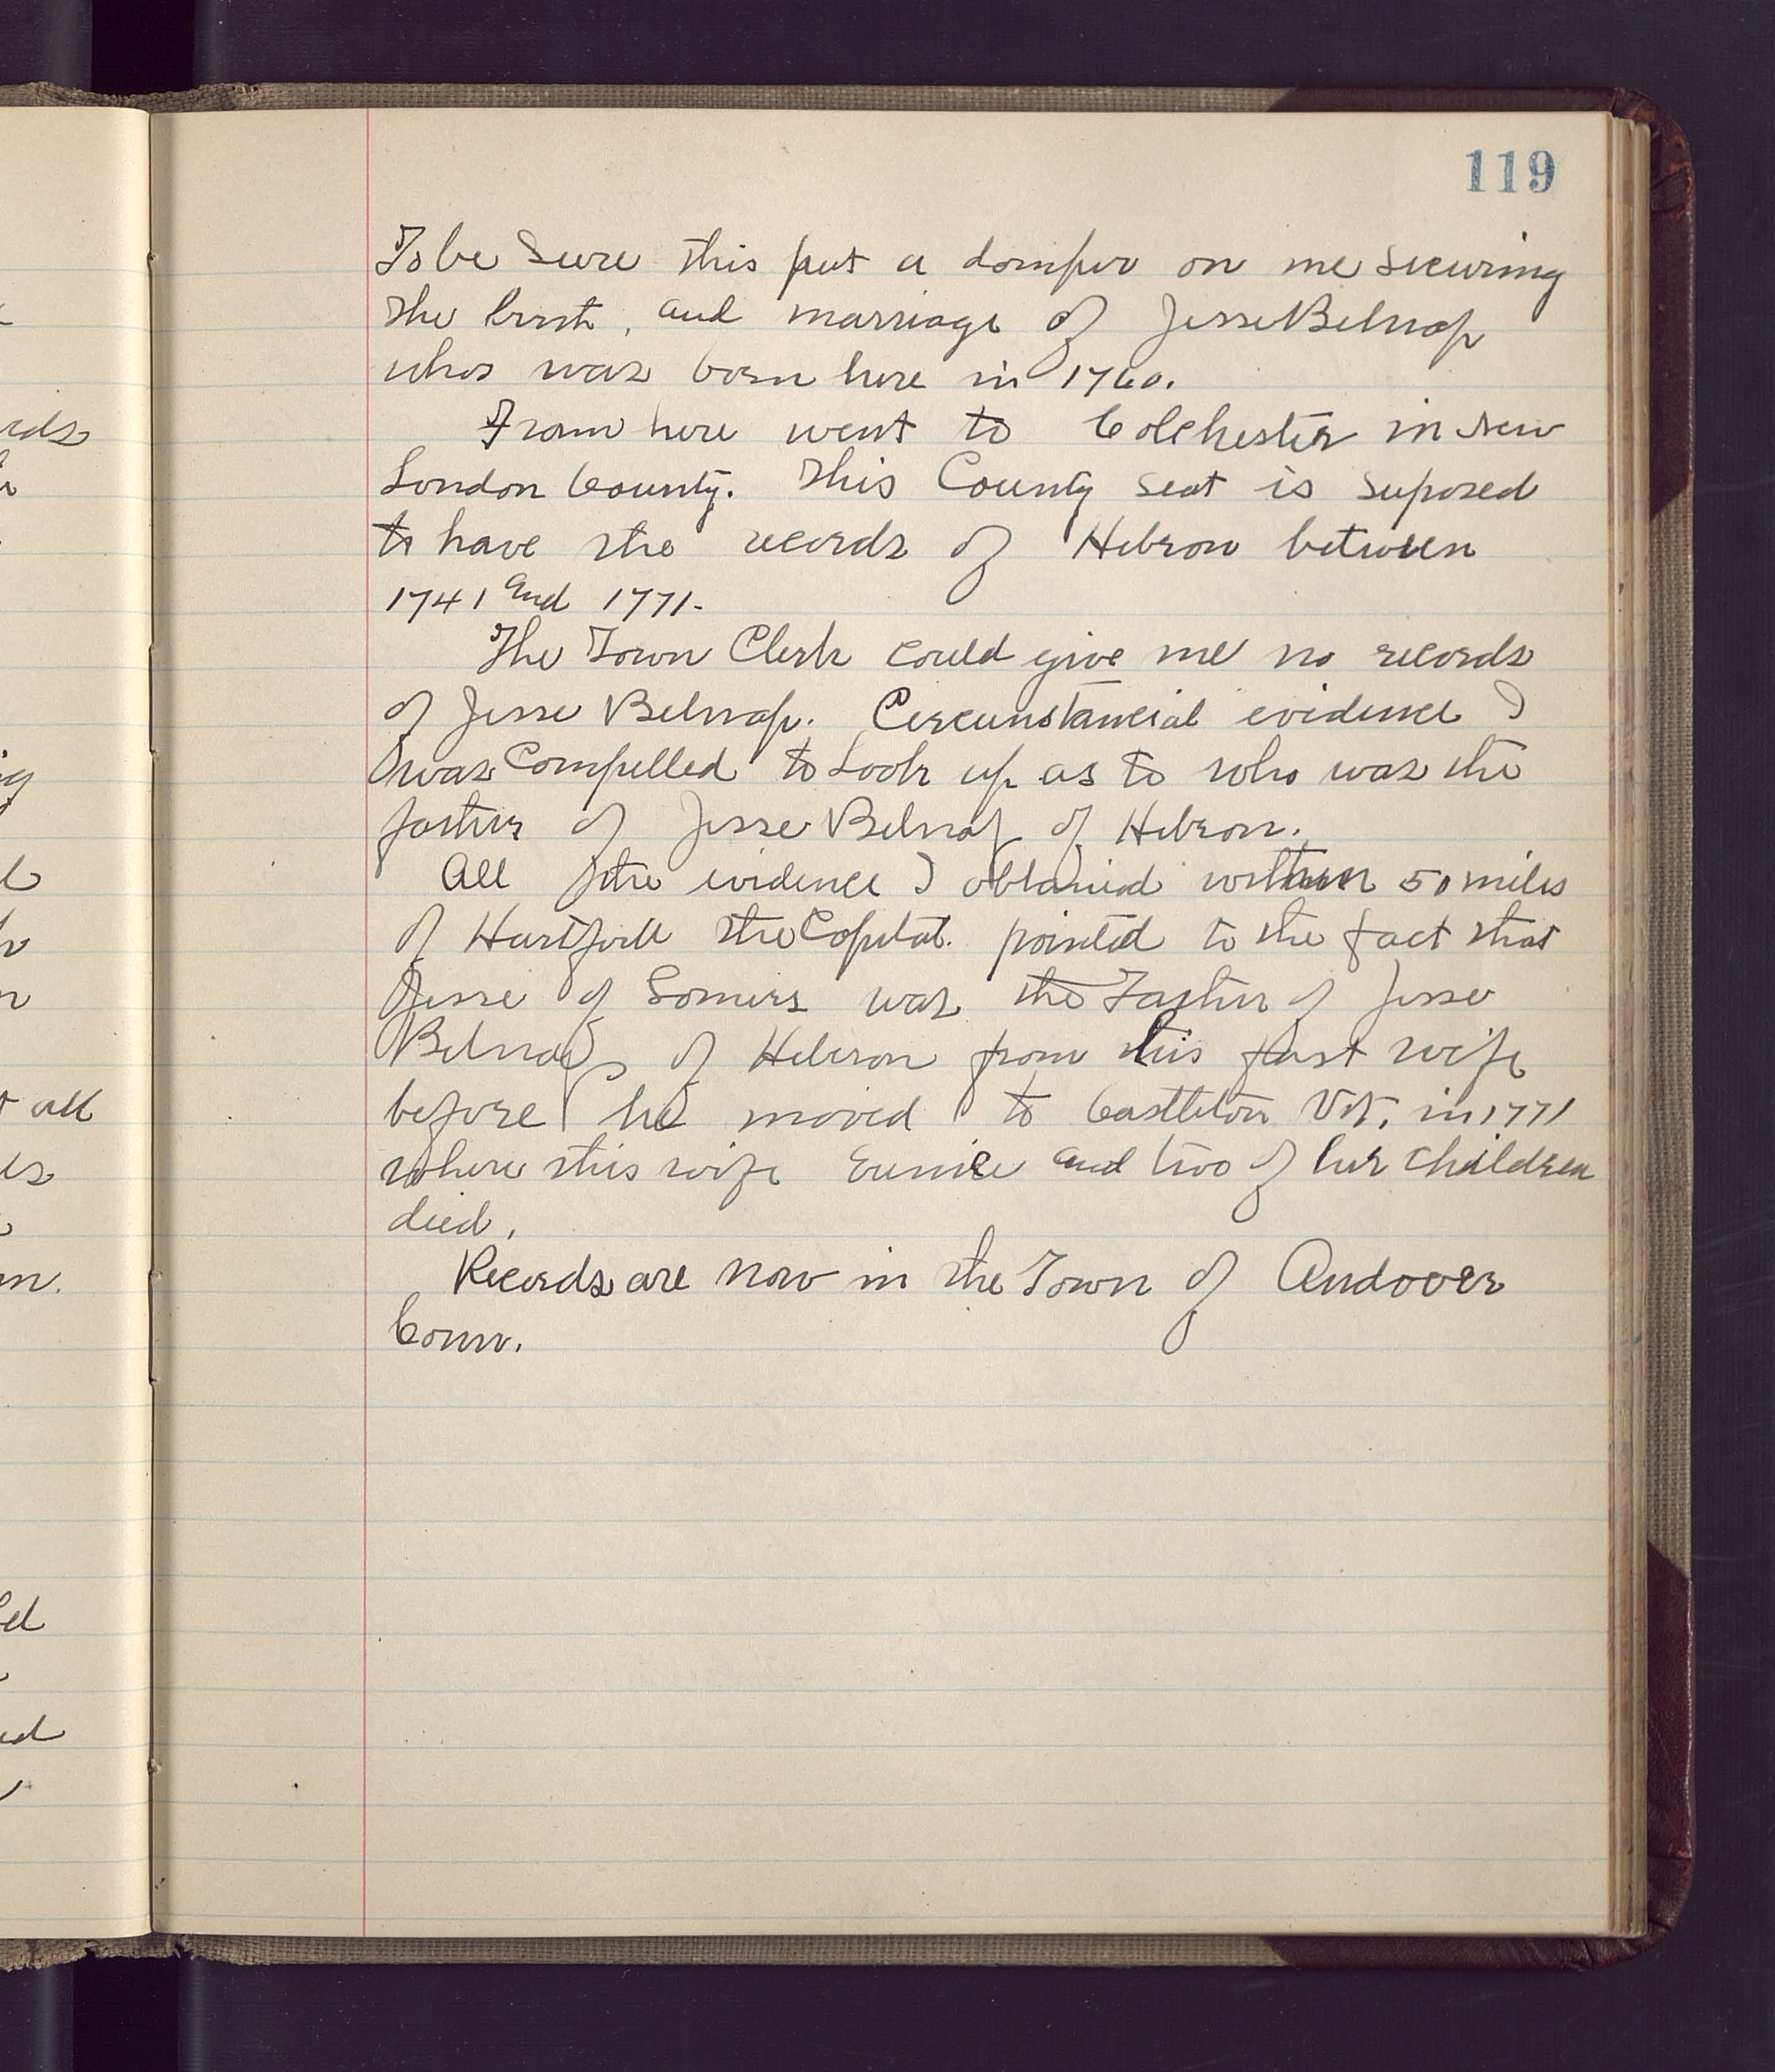 119
To be Sure this put a damper on me securing
the birth, and marriage of Jesse Belnap
who was born here in 1760.
From here went to Colchester in New
London County. This County Seat is suposed
to have the records of Hebron between
1741 and 1771.
The Town Clerk could give me no records
of Jesse Belnap. Cercumstancial evidence I
was Compelled to Look up as to who was the
father of Jesse Belnap of Hebron.
All the evidence I obtained within 50 miles
of Hartford the Capital. pointed to the fact that
Jesse of Somers was the Father of Jesse
Belnap of Hebron from his first wife
before he moved to Castleton Vt. in 1771
where this wife Eunice and two of her Children
died.
Records are now in the Town of Andover
Conn.